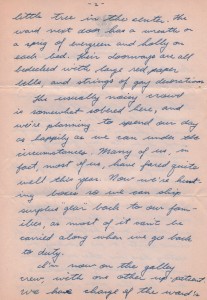 - 2 -
little tree in the center. the
ward next door has a wreath or
a sprig of evergreen and holly on
each bed. Their doorways are all
bedecked with large red paper
bells, and strings of gay decorations
The usually noisy crowd
is somewhat sobered here, and
we're planning to spend our day
as happily as we can under the
circumstances. Many of us, in
fact, most of us, have fared quite
well this year. Now we're hunt-
ing boxes so we can ship
surplus gear back to our fam-
ilies, as most of it can't be
carried along when we go back
to duty.
I'm now on the galley
crew, with one other up-patient
We have charge of the ward's